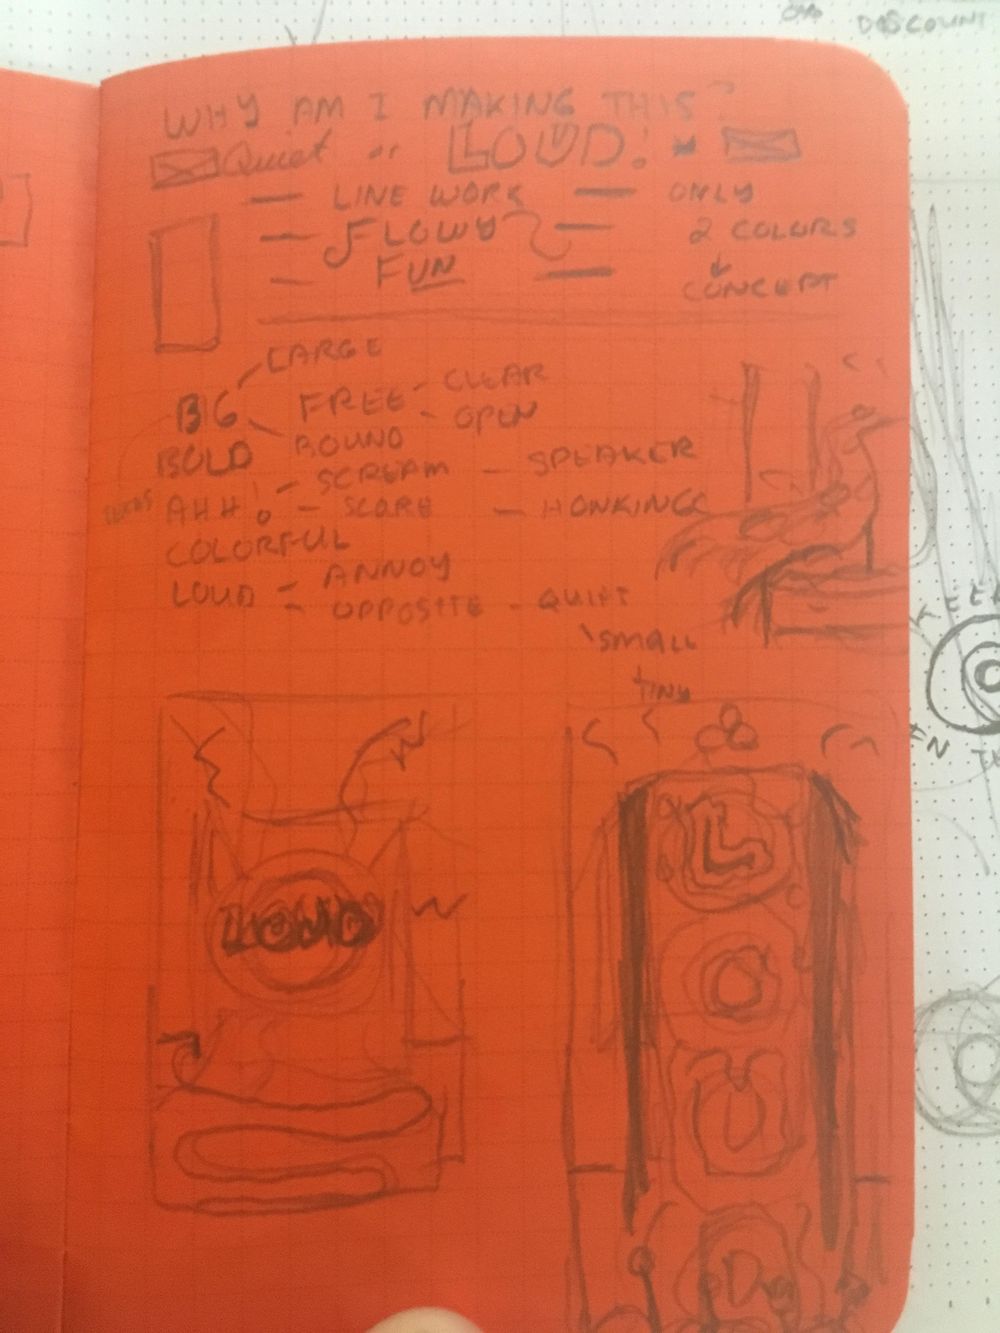 DISCOUNT
WHY AM I MAKING THIS?
Quiet or LOUD!
— LINE WORK — ONLY
— FLOWY — 2 COLORS
— FUN — CONCEPT
LARGE
BIG FREE - CLEAR
- OPEN
BOLD ROUND
AHH! - SCREAM - SPEAKER
- SCARE - HONKING
COLORFUL
LOUD - ANNOY
- OPPOSITE - QUIET
SMALL
TINY
LOUD
L
O
U
D
KEEP